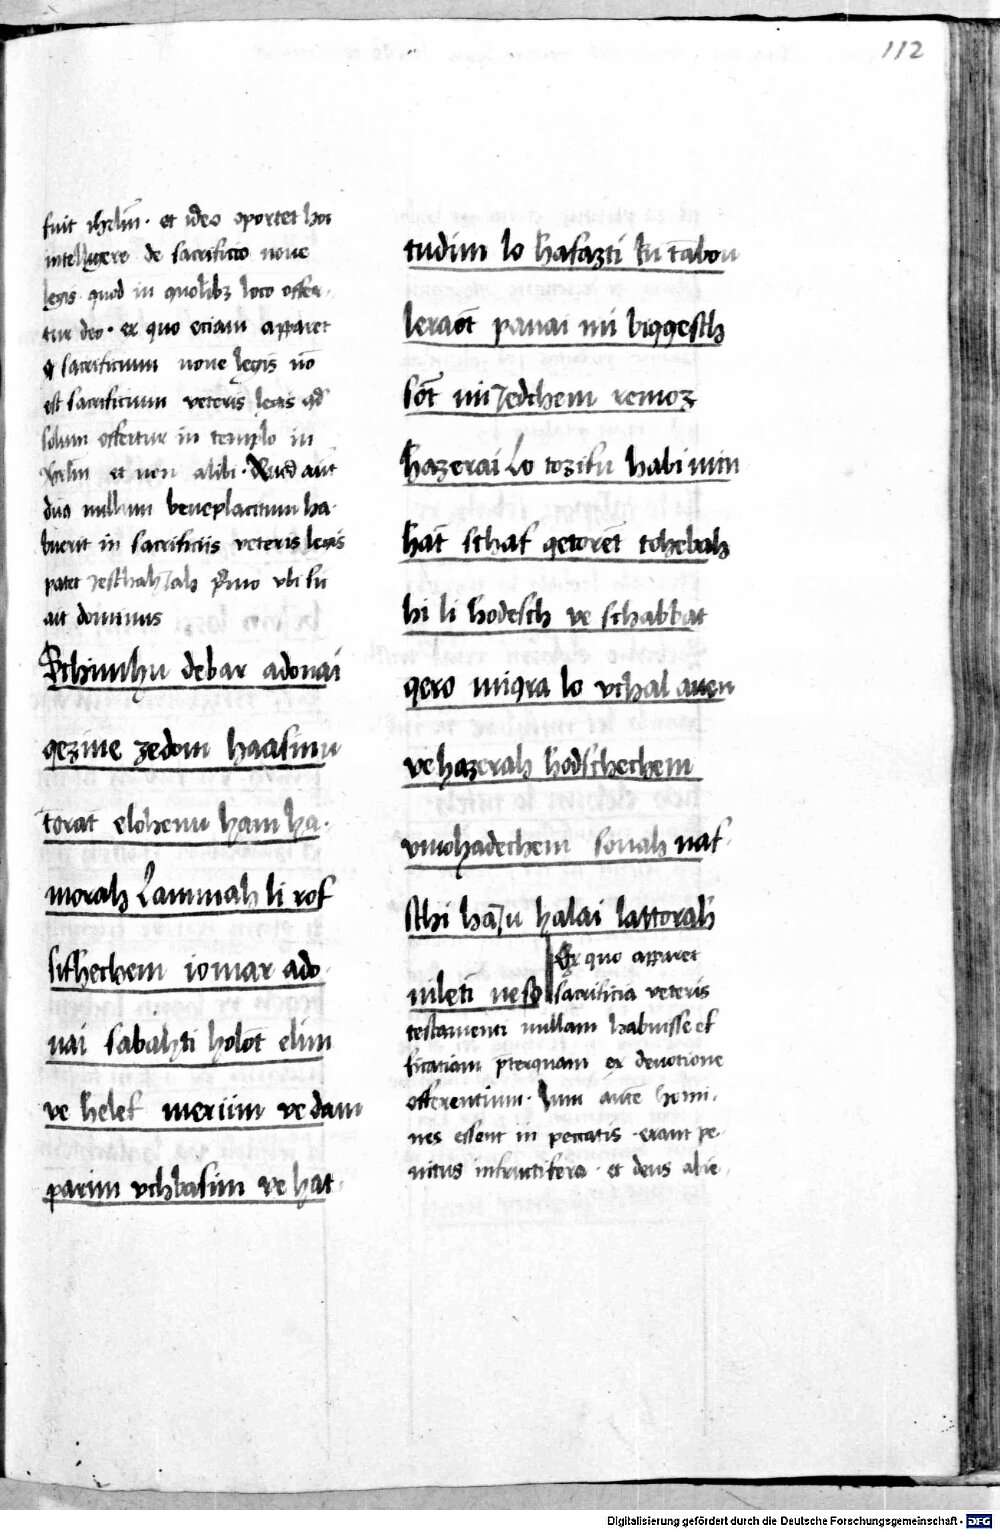 112
fuit iħrlm̄. et ideo oportet hoc
intelligere de sacrificio noue
legis quod in quolibꝫ loco offer-
tur deo. ex quo etiam apparet
ꝙ sacrificium noue legis nō
est sacrificium veteris legis qđ
solum offertur in templo in
et non alibi. Quod aūt
deus nullum beneplacitum ha-
buerit in sacrificiis veteris legis
patet Jesthahiah p̄mo vbi sic
ait dominus
Schimhu debar adonai
qezine zedom haasinu
torat elohenu ham ha-
morah Lammah li rof
sifhechem iomar ado-
nai sabahti holōt elim
ve helef meriim ve dam
parim vchbasim ve hat-
tudim lo hafazti ki tabou
leraōt panai mi biqqesch
sōt mijedchem remoz
hazerai Lo tozifu habi min
hāt schaf qetorēt tohebah
hi li hodesch ve schabbat
qero miqra lo vchal auen
ve hazerah hodschechem
vmohadechem sonah naf-
schi haju halai lattorah
nileti neso
Ex quo apparet
sacrificia veteris
testamenti nullam habuisse ef
ficatiam p̄terquam ex deuotione
offerentium. Cum aūte homi-
nes essent in peccatis erant pe-
nitus infructifera. et deus abie-
Digitalisierung gefördert durch die Deutsche Forschungsgemeinschaft - DFG